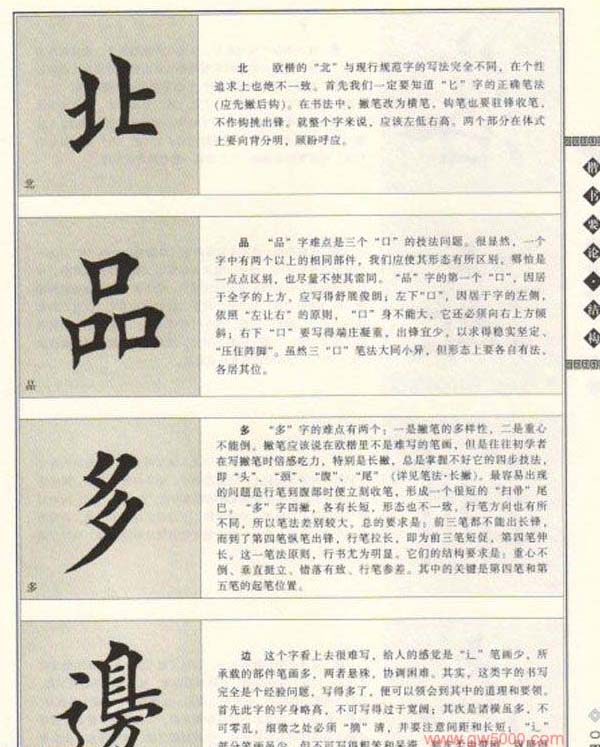 北
北　欧楷的“北”与现行规范字的写法完全不同，在个性
追求上也绝不一致。首先我们一定要知道“匕”字的正确笔法
(应先撇后钩)。在书法中，撇笔改为横笔，钩笔也要驻锋收笔，
不作钩挑出锋。就整个字来说，应该左低右高。两个部分在体式
上要向背分明，顾盼呼应。
北
品
品　“品”字难点是三个“口”的技法问题。很显然，一个
字中有两个以上的相同部件，我们应使其形态有所区别，哪怕是
一点点区别，也尽量不使其雷同。“品”字的第一个“口”，因居
于全字的上方，应写得舒展俊朗；左下“口”，因居于字的左侧，
依照“左让右”的原则，“口”身不能大，它还必须向右上方倾
斜；右下“口”要写得端庄凝重，出锋宜少，以求得稳实坚定、
“压住阵脚”。虽然三“口”笔法大同小异，但形态上要各自有法，
各居其位。
品
多
多　“多”字的难点有两个：一是撇笔的多样性，二是重心
不能倒。撇笔应该说在欧楷里不是难写的笔画，但是往往初学者
在写撇笔时倍感吃力，特别是长撇，总是掌握不好它的四步技法，
即“头”、“颈”、“腹”、“尾”（详见笔法·长撇）。最容易出现
的问题是行笔到腹部时便立刻收笔，形成一个很短的“扫帚”尾
巴。“多”字四撇，各有长短，形态也不一致，行笔方向也有所
不同，所以笔法差别较大。总的要求是：前三笔都不能出长锋，
而到了第四笔纵笔出锋，行笔拉长，即为前三笔短促，第四笔伸
长。这一笔法原则，行书尤为明显。它们的结构要求是：重心不
倒、垂直挺立、错落有致、行笔参差。其中的关键是第四笔和第
五笔的起笔位置。
多
邊
边　这个字看上去很难写，给人的感觉是“辶”笔画少，所
承载的部件笔画多，两者悬殊，协调困难。其实，这类字的书写
完全是个经验问题，写得多了，便可以领会到其中的道理和要领。
首先此字的字身略高，不可写得过于宽阔；其次是诸横虽多，不
可零乱，细微之处必须“摘”清，并要注意间距和长短；“辶”
楷书要论·结构
www.gw5000.com